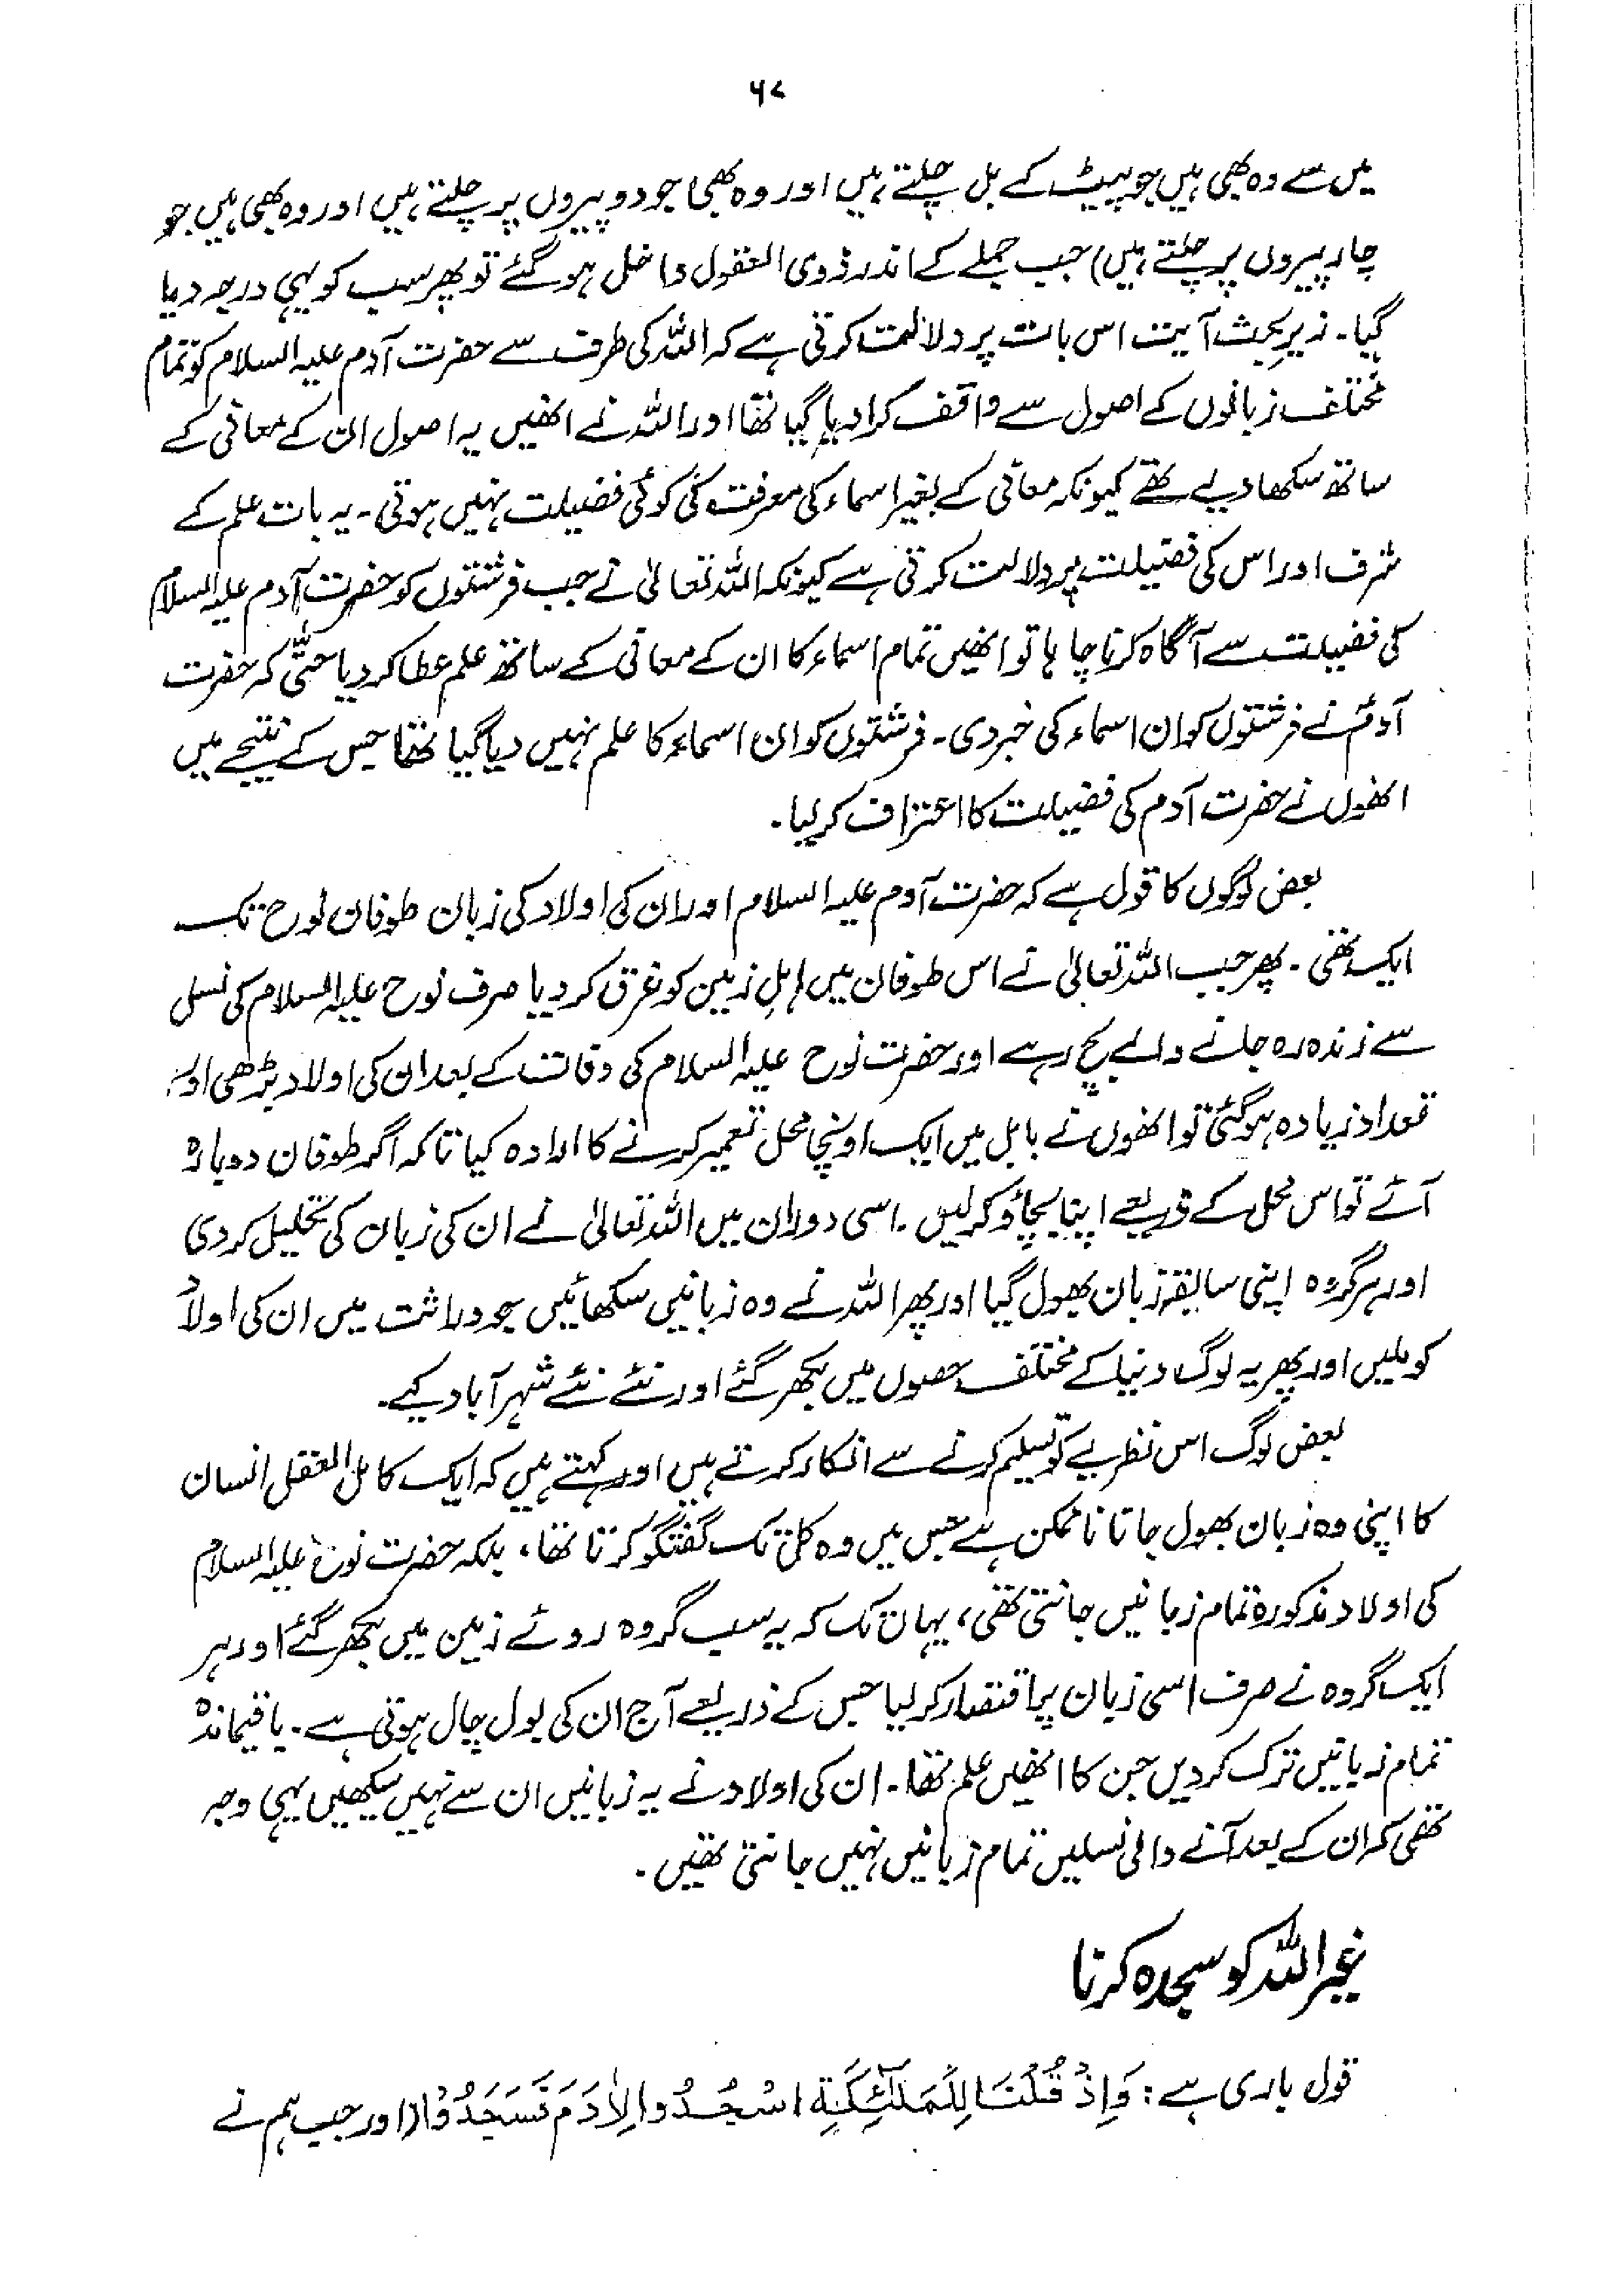 ۶۷
میں سے وہ بھی ہیں جو پیٹ کے بل چلتے ہیں اور وہ بھی جو دو پیروں پر چلتے ہیں اور وہ بھی ہیں جو
چار پیروں پر چلتے ہیں) جب جملے کے اندر ذوی العقول داخل ہو گئے تو پھر سب کو یہی درجہ دیا
گیا۔ زیر بحث آیت اس بات پر دلالت کرتی ہے کہ اللہ کی طرف سے حضرت آدم علیہ السلام کو تمام
مختلف زبانوں کے اصول سے واقف کرا دیا گیا تھا اور اللہ نے انھیں یہ اصول ان کے معانی کے
ساتھ سکھا دیے تھے کیونکہ معانی کے بغیر اسماء کی معرفت کی کوئی فضیلت نہیں ہوتی۔ یہ بات علم کے
شرف اور اس کی فضیلت پر دلالت کرتی ہے کیونکہ اللہ تعالیٰ نے جب فرشتوں کو حضرت آدم علیہ السلام
کی فضیلت سے آگاہ کرنا چاہا تو انھیں تمام اسماء کا ان کے معانی کے ساتھ علم عطا کر دیا حتّٰی کہ حضرت
آدمؑ نے فرشتوں کو ان اسماء کی خبر دی۔ فرشتوں کو ان اسماء کا علم نہیں دیا گیا تھا جس کے نتیجے میں
انھوں نے حضرت آدم کی فضیلت کا اعتراف کر لیا۔
بعض لوگوں کا قول ہے کہ حضرت آدم علیہ السلام اور ان کی اولاد کی زبان طوفان نوح تک
ایک تھی۔ پھر جب اللہ تعالیٰ نے اس طوفان میں اہلِ زمین کو غرق کر دیا صرف نوح علیہ السلام کی نسل
سے زندہ رہ جانے والے بچ رہے اور حضرت نوح علیہ السلام کی وفات کے بعد ان کی اولاد بڑھی اور
تعداد زیادہ ہو گئی تو انھوں نے بابل میں ایک اونچا محل تعمیر کرنے کا ارادہ کیا تاکہ اگر طوفان دوبارہ
آئے تو اس محل کے ذریعے اپنا بچاؤ کر لیں۔ اسی دوران میں اللہ تعالیٰ نے ان کی زبان کی تحلیل کر دی
اور ہر گروہ اپنی سابقہ زبان بھول گیا اور پھر اللہ نے وہ زبانیں سکھائیں جو وراثت میں ان کی اولاد
کو ملیں اور پھر یہ لوگ دنیا کے مختلف حصوں میں بکھر گئے اور نئے نئے شہر آباد کیے۔
بعض لوگ اس نظریے کو تسلیم کرنے سے انکار کرتے ہیں اور کہتے ہیں کہ ایک کامل العقل انسان
کا اپنی وہ زبان بھول جانا ناممکن ہے جس میں وہ کل تک گفتگو کرتا تھا، بلکہ حضرت نوح علیہ السلام
کی اولاد مذکورہ تمام زبانیں جانتی تھی، یہاں تک کہ یہ سب گروہ روئے زمین میں بکھر گئے اور ہر
ایک گروہ نے صرف اسی زبان پر اقتصار کر لیا جس کے ذریعے آج ان کی بول چال ہوتی ہے۔ باقیماندہ
تمام زبانیں ترک کر دیں جن کا انھیں علم تھا۔ ان کی اولاد نے یہ زبانیں ان سے نہیں سیکھیں یہی وجہ
تھی کہ ان کے بعد آنے والی نسلیں تمام زبانیں نہیں جانتی تھیں۔
غیر اللہ کو سجدہ کرنا
قول باری ہے: وَاِذْ قُلْنَا لِلْمَلٰٓئِكَةِ اسْجُدُوا لِاٰدَمَ فَسَجَدُوْا (اور جب ہم نے